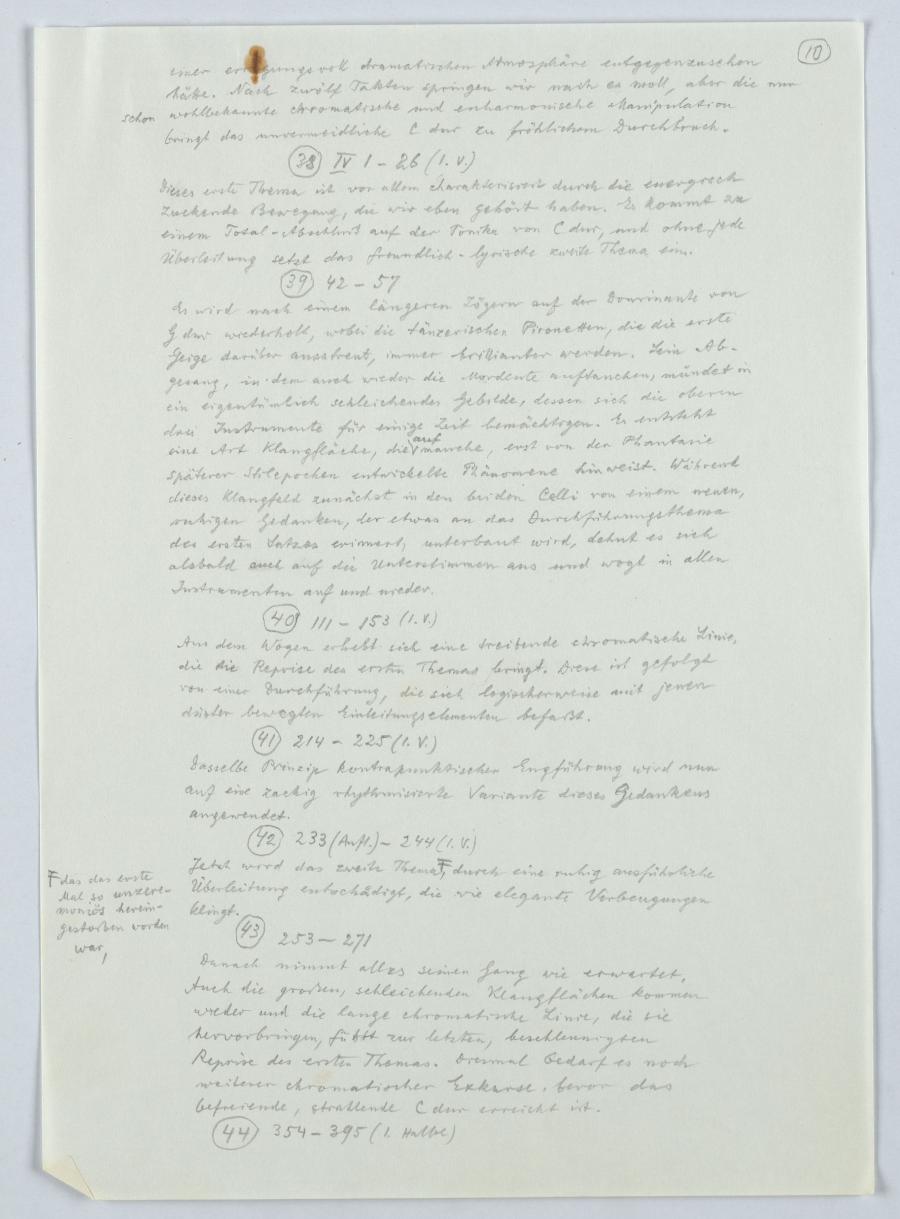 10
einer erregungsvoll dramatischen Atmosphäre entgegenzusehen
hätte. Nach zwölf Takten springen wir nach es moll, aber die nun
schon wohlbekannte chromatische und enharmonische Manipulation
bringt das unvermeidliche C dur zu fröhlichem Durchbruch.
38 IV 1 - 26 (1. V.)
Dieses erste Thema ist vor allem charakterisiert durch die energisch
zuckende Bewegung, die wir eben gehört haben. Es kommt zu
einem Total-Abschluß auf der Tonika von C dur, und ohne jede
Überleitung setzt das freundlich-lyrische zweite Thema ein.
39 42 - 57
Es wird nach einem längeren Zögern auf der Dominante von
G dur wiederholt, wobei die tänzerischen Pirouetten, die die erste
Geige darüber ausstreut, immer brillianter werden. Sein Ab-
gesang, in dem auch wieder die Mordente auftauchen, mündet in
ein eigentümlich schleichendes Gebilde, dessen sich die oberen
drei Instrumente für einige Zeit bemächtigen. Es entsteht
eine Art Klangfläche, die auf manche, erst von der Phantasie
späterer Stilepochen entwickelte Phänomene hinweist. Während
dieses Klangfeld zunächst in den beiden Celli von einem neuen,
ruhigen Gedanken, der etwas an das Durchführungsthema
des ersten Satzes erinnert, unterbaut wird, dehnt es sich
alsbald auch auf die Unterstimmen aus und wogt in allen
Instrumenten auf und nieder.
40 111 - 153 (1. V.)
Aus dem Wogen erhebt sich eine treibende chromatische Linie,
die die Reprise des ersten Themas bringt. Diese ist gefolgt
von einer Durchführung, die sich logischerweise mit jenen
düster bewegten Einleitungselementen befaßt.
41 214 - 225 (1. V.)
Dasselbe Prinzip kontrapunktischer Engführung wird nun
auf eine zackig rhythmisierte Variante dieses Gedankens
angewendet.
42 233 (Auft.) - 244 (1. V.)
Jetzt wird das zweite Thema, durch eine ruhig ausführliche
Überleitung entschädigt, die wie elegante Verbeugungen
klingt.
das das erste
Mal so unzere-
moniös herein-
gestoßen worden
war,
43 253 - 271
Danach nimmt alles seinen Gang wie erwartet,
Auch die großen, schleichenden Klangflächen kommen
wieder und die lange chromatische Linie, die sie
hervorbringen, führt zur letzten, beschleunigten
Reprise des ersten Themas. Diesmal bedarf es noch
weiterer chromatischer Exkurse, bevor das
befreiende, strahlende C dur erreicht ist.
44 354 - 395 (1. Hälfte)